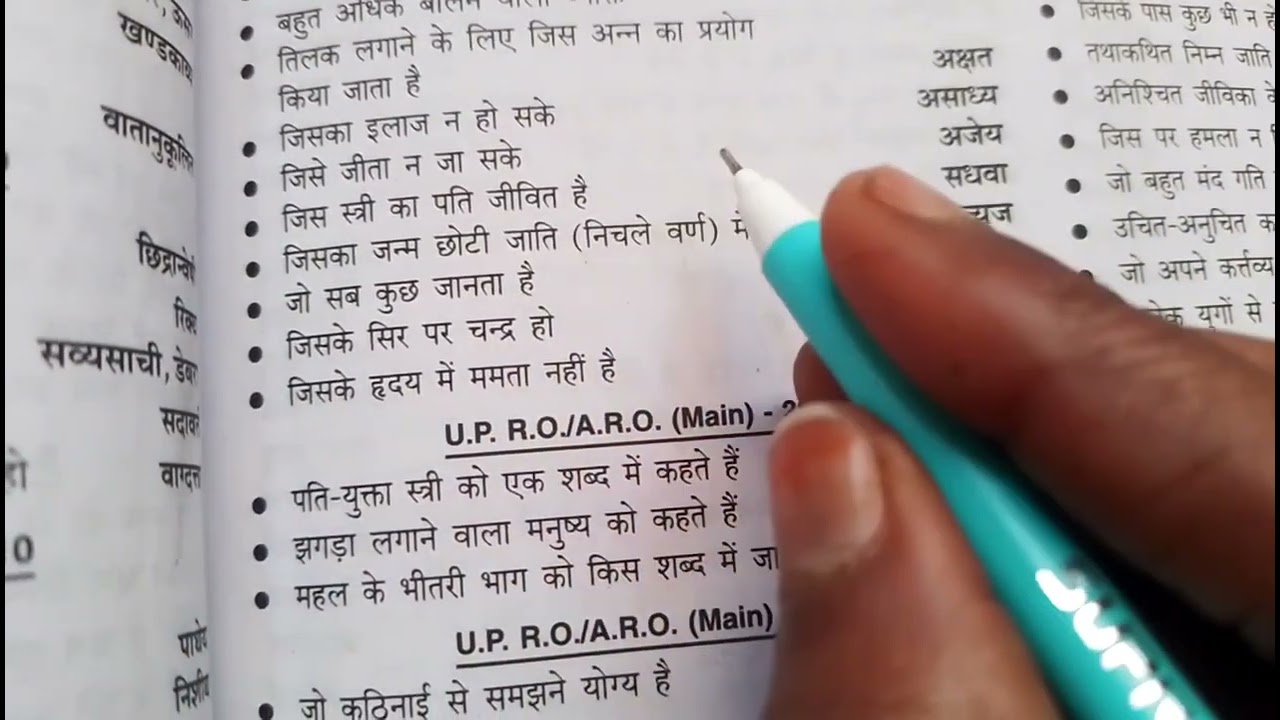 खण्डकाव्य
वातानुकूलित
सव्यसाची, डेबरा
हो
0
बहुत अधिक बोलने वाला
तिलक लगाने के लिए जिस अन्न का प्रयोग
किया जाता है अक्षत
जिसका इलाज न हो सके असाध्य
जिसे जीता न जा सके अजेय
जिस स्त्री का पति जीवित है सधवा
जिसका जन्म छोटी जाति (निचले वर्ण) में
जो सब कुछ जानता है
जिसके सिर पर चन्द्र हो
जिसके हृदय में ममता नहीं है
U.P. R.O./A.R.O. (Main) -
पति-युक्ता स्त्री को एक शब्द में कहते हैं
झगड़ा लगाने वाला मनुष्य को कहते हैं
महल के भीतरी भाग को किस शब्द में जा
U.P. R.O./A.R.O. (Main)
जो कठिनाई से समझने योग्य है
जिसके पास कुछ भी न
तथाकथित निम्न जाति
अनिश्चित जीविका
जिस पर हमला न
जो बहुत मंद गति
उचित-अनुचित
जो अपने कर्त्तव्य
युगों से